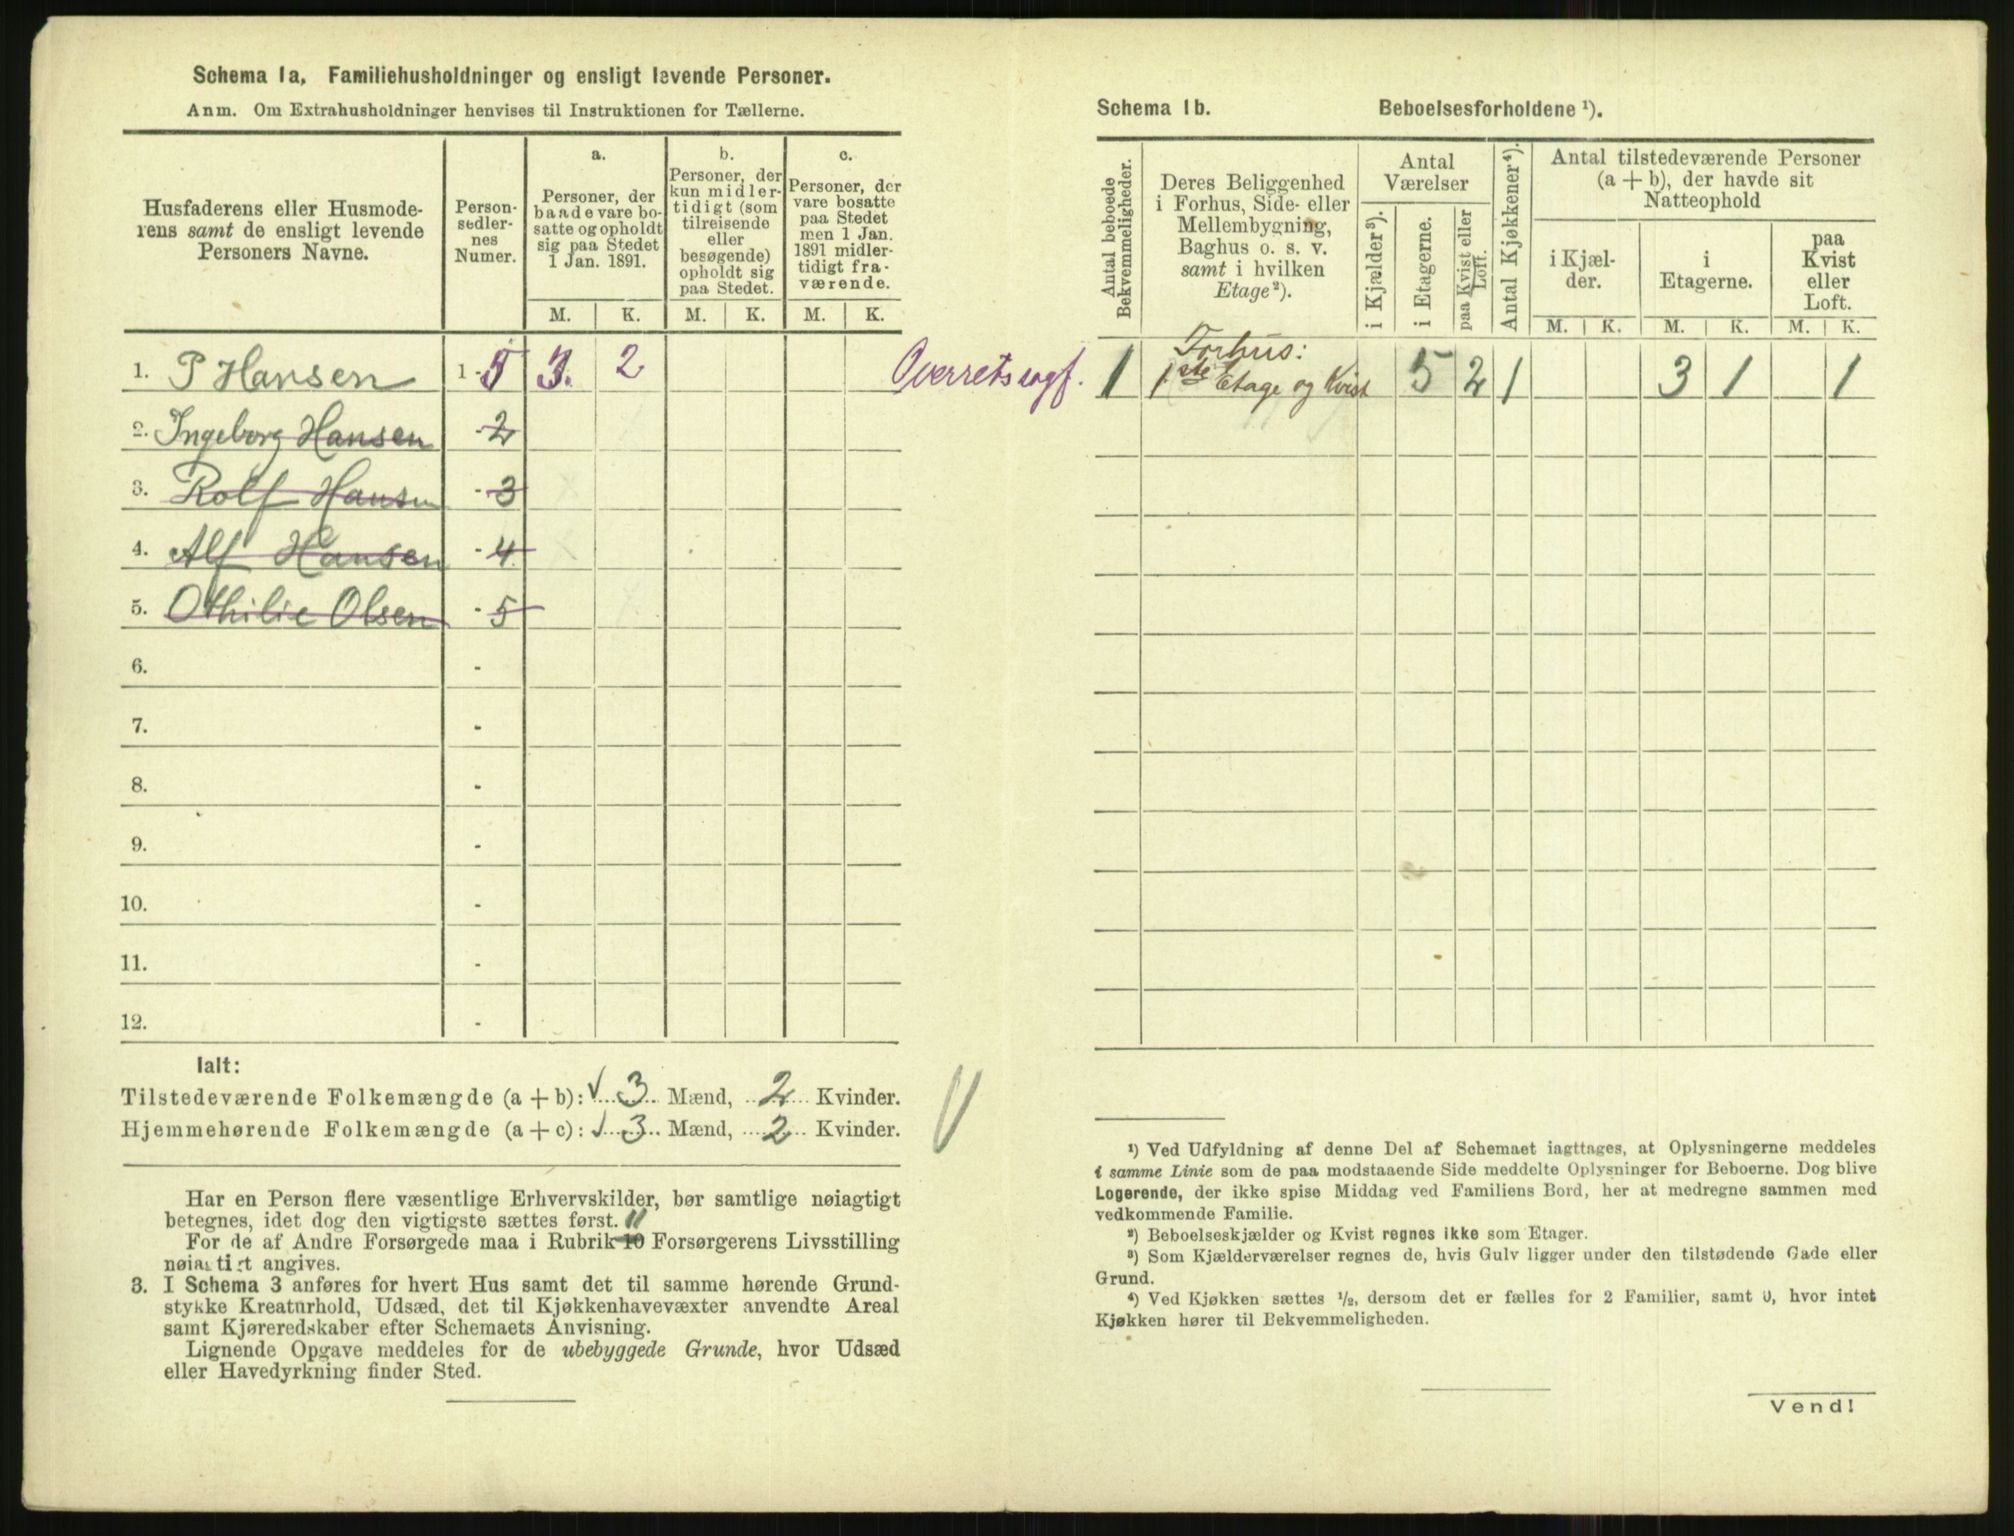 Schema 1a, Familiehusholdninger og ensligt levende Personer.
Anm. Om Extrahusholdninger henvises til Instruktionen for Tællerne.
Husfaderens eller Husmode-
rens samt de ensligt levende
Personers Navne.
Person-
sedler-
nes
Numer.
a.
Personer, der
baade vare bo-
satte og opholdt
sig paa Stedet
1 Jan. 1891.
b.
Personer, der
kun midler-
tidigt (som
tilreisende
eller
besøgende)
opholdt sig
paa Stedet.
c.
Personer, der
vare bosatte
paa Stedet
men 1 Jan.
1891 midler-
tidigt fra-
værende.
M. K. M. K. M. K.
1. P Hansen 1 - 5 3. 2 Overretssagf.
2. Ingeborg Hansen - 2
3. Rolf Hansen - 3
4. Alf Hansen - 4
5. Othilie Olsen - 5
6. -
7. -
8. -
9. -
10. -
11. -
12. -
Ialt:
Tilstedeværende Folkemængde (a + b): 3 Mænd, 2 Kvinder.
Hjemmehørende Folkemængde (a + c): 3 Mænd, 2 Kvinder.
Har en Person flere væsentlige Erhvervskilder, bør samtlige nøiagtigt
betegnes, idet dog den vigtigste sættes først. 11
For de af Andre Forsørgede maa i Rubrik 10 Forsørgerens Livsstilling
nøiagtigt angives.
3. I Schema 3 anføres for hvert Hus samt det til samme hørende Grund-
stykke Kreaturhold, Udsæd, det til Kjøkkenhavevæxter anvendte Areal
samt Kjøreredskaber efter Schemaets Anvisning.
Lignende Opgave meddeles for de ubebyggede Grunde, hvor Udsæd
eller Havedyrkning finder Sted.
Schema 1b. Beboelsesforholdene ¹).
Antal beboede
Bekvemmeligheder.
Deres Beliggenhed
i Forhus, Side- eller
Mellembygning,
Baghus o. s. v.
samt i hvilken
Etage ²).
Antal
Værelser
i Kjælder ³).
i Etagerne.
paa Kvist eller
Loft.
Antal Kjøkkener ⁴).
Antal tilstedeværende Personer
(a + b), der havde sit
Natteophold
i Kjæl-
der.
i
Etagerne.
paa
Kvist
eller
Loft.
M. K. M. K. M. K.
Forhus:
1 1ste Etage og Kvist 5 2 1 3 1 1
¹) Ved Udfyldning af denne Del af Schemaet iagttages, at Oplysningerne meddeles
i samme Linie som de paa modstaaende Side meddelte Oplysninger for Beboerne. Dog blive
Logerende, der ikke spise Middag ved Familiens Bord, her at medregne sammen med
vedkommende Familie.
²) Beboelseskjælder og Kvist regnes ikke som Etager.
³) Som Kjælderværelser regnes de, hvis Gulv ligger under den tilstødende Gade eller
Grund.
⁴) Ved Kjøkken sættes ½, dersom det er fælles for 2 Familier, samt 0, hvor intet
Kjøkken hører til Bekvemmeligheden.
Vend!